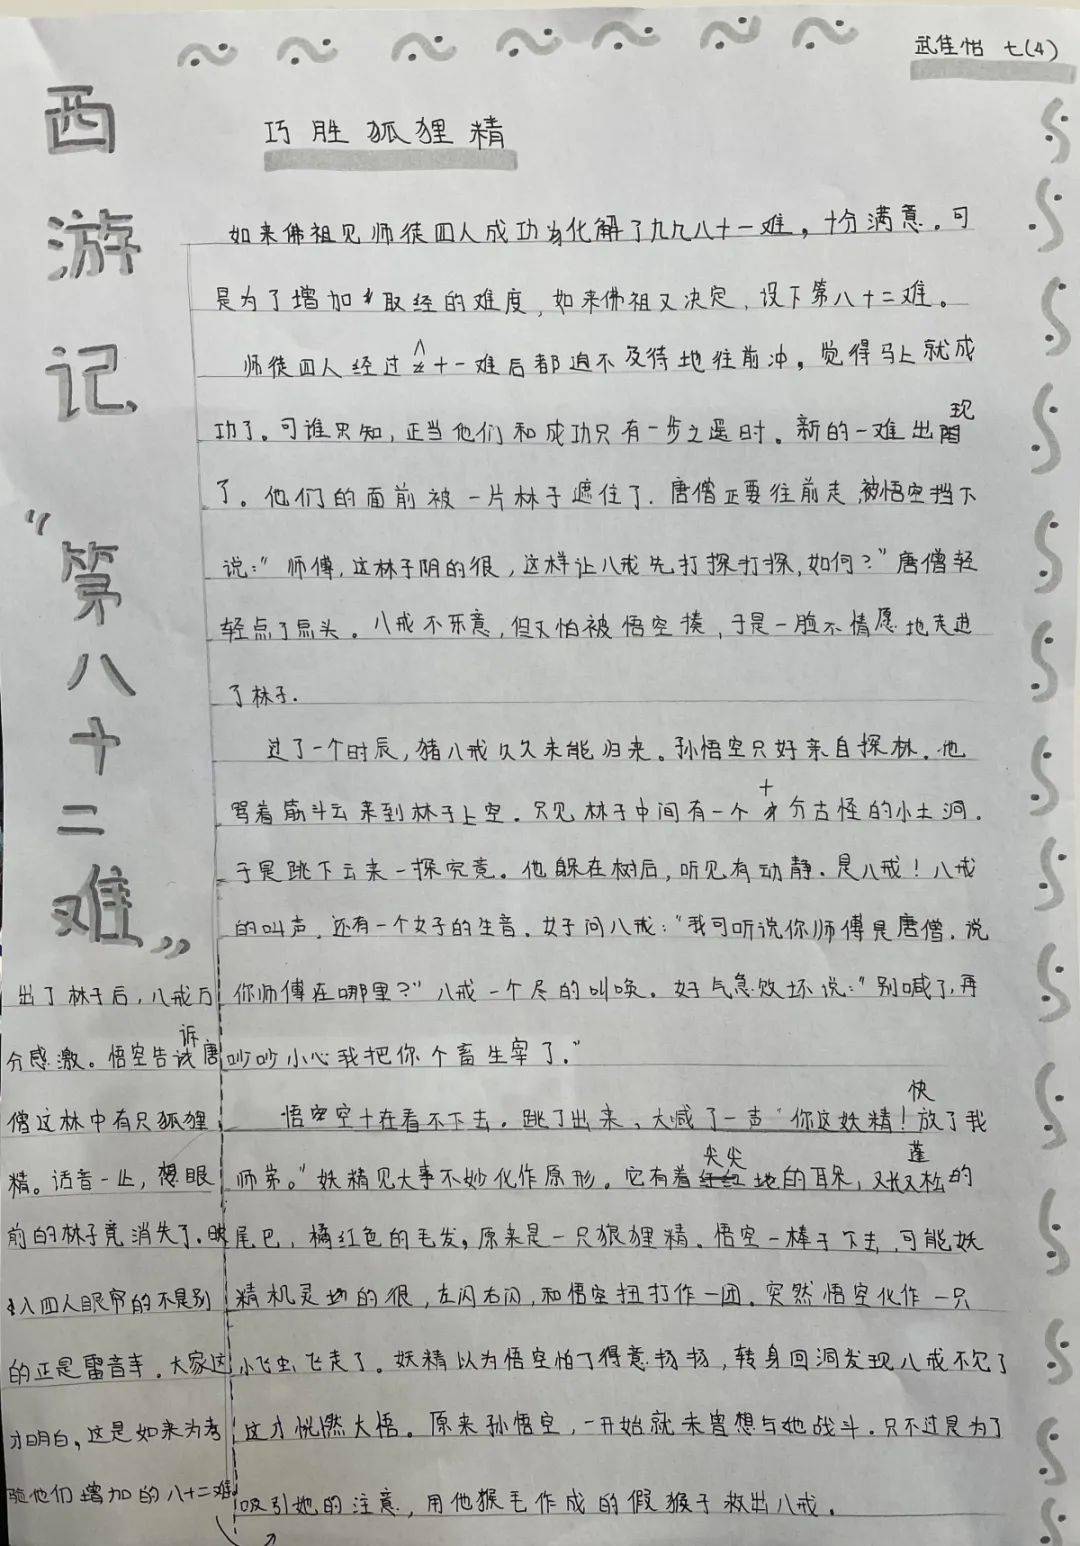 武佳怡 七(4)
西游记
“第八十二难”
巧胜狐狸精
如来佛祖见师徒四人成功化解了九九八十一难，十分满意。可
是为了增加取经的难度，如来佛祖又决定，设下第八十二难。
师徒四人经过八十一难后都迫不及待地往前冲。觉得马上就成
功了。可谁只知，正当他们和成功只有一步之遥时。新的一难出现
了。他们的面前被一片林子遮住了.唐僧正要往前走，被悟空挡下
说：“师傅，这林子阴的很，这样让八戒先打探打探，如何？”唐僧轻
轻点了点头。八戒不乐意，但又怕被悟空揍，于是一脸不情愿地走进
了林子.
过了一个时辰，猪八戒久久未能归来。孙悟空只好亲自探林.他
骂着筋斗云来到林子上空。只见林子中间有一个十分古怪的小土洞.
于是跳下云来一探究竟。他躲在树后，听见有动静.是八戒！八戒
的叫声.还有一个女子的生音.女子问八戒：“我可听说你师傅是唐僧.说
你师傅在哪里？”八戒一个尽的叫唤。好气急败坏说：“别喊了，再
吵吵小心我把你个畜生宰了.”
悟空空十在看不下去.跳了出来，大减了一声“你这妖精！快放了我
师弟。”妖精见大事不妙化作原形。它有着尖尖地的耳朵，又长又蓬松的
尾巴，橘红色的毛发，原来是一只狼狸精.悟空一棒于下去，可能妖
精机灵地的很，左闪右闪，和悟空扭打作一团.突然悟空化作一只
小飞虫飞走了。妖精以为悟空怕了得意扬扬，转身回洞发现八戒不见了
这才恍然大悟。原来孙悟空，一开始就未曾想与她战斗.只不过是为了
吸引她的注意，用他猴毛作成的假猴子救出八戒.
出了林子后，八戒万
分感激。悟空告诉唐
僧这林中有只狐狸
精。话音一止，眼
前的林子竟消失了.映
入四人眼帘的不是别
的正是雷音寺.大家这
才明白，这是如来为考
验他们增加的八十二难